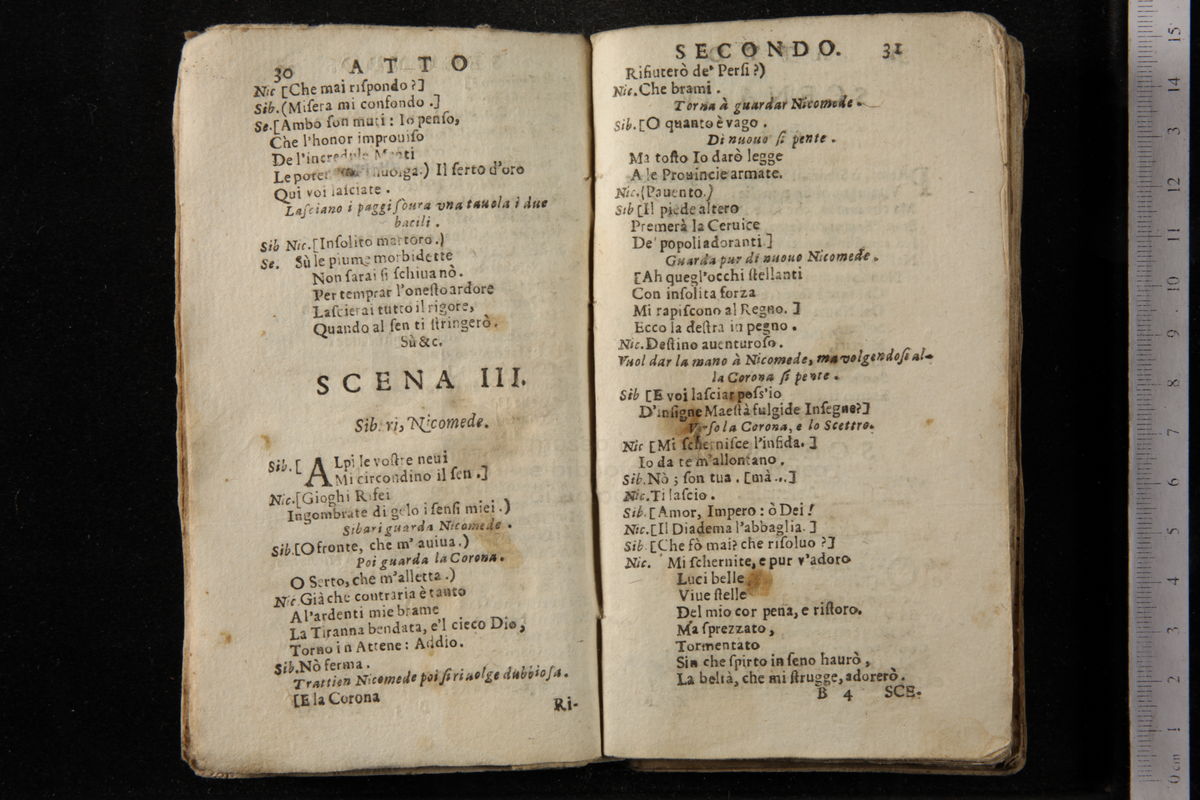 30 ATTO
Nic [Che mai riſpondo?]
Sib. (Miſera mi confondo.]
Se. [Ambo ſon muti: Io penſo,
Che l'honor improuiſo
De l'incredule Menti
Le poter inuolga.) Il ſerto d'oro
Qui voi laſciate.
Laſciano i paggi ſoura vna tauola i due
bacili.
Sib Nic. [Inſolito martoro.)
Se. Sù le piume morbidette
Non ſarai ſi ſchiua nò.
Per temprar l'oneſto ardore
Laſcierai tutto il rigore,
Quando al ſen ti ſtringerò.
Sù &c.
SCENA III.
Sibari, Nicomede.
Sib. [ ALpi le voſtre neui
Mi circondino il ſen.]
Nic. [Gioghi Rifei
Ingombrate di gelo i ſenſi miei.)
Sibari guarda Nicomede.
Sib. [O fronte, che m'auiua.)
Poi guarda la Corona.
O Serto, che m'alletta.)
Nic Già che contraria è tanto
A l'ardenti mie brame
La Tiranna bendata, e'l cieco Dio,
Torno in Attene: Addio.
Sib. Nò ferma.
Trattien Nicomede poi ſi riuolge dubbioſa.
[E la Corona
Ri-
SECONDO. 31
Rifiuterò de' Perſi?)
Nic. Che brami.
Torna à guardar Nicomede.
Sib. [O quanto è vago.
Di nuouo ſi pente.
Ma toſto Io darò legge
A le Prouincie armate.
Nic. (Pauento.)
Sib [Il piede altero
Premerà la Ceruice
De' popoli adoranti]
Guarda pur di nuouo Nicomede.
[Ah quegl'occhi ſtellanti
Con inſolita forza
Mi rapiſcono al Regno.]
Ecco la deſtra in pegno.
Nic. Deſtino auenturoſo.
Vuol dar la mano à Nicomede, ma volgendoſi al-
la Corona ſi pente.
Sib [E voi laſciar poſs'io
D'inſigne Maeſtà fulgide Inſegne?]
Verſo la Corona, e lo Scettro.
Nic [Mi ſcherniſce l'infida.]
Io da te m'allontano.
Sib. Nò; ſon tua. [mà ...]
Nic. Ti laſcio.
Sib. [Amor, Impero: ò Dei!
Nic. [Il Diadema l'abbaglia.]
Sib [Che fò mai? che riſoluo?]
Nic. Mi ſchernite, e pur v'adoro
Luci belle
Viue ſtelle
Del mio cor pena, e riſtoro.
Ma ſprezzato,
Tormentato
Sin che ſpirto in ſeno haurò,
La beltà, che mi ſtrugge, adorerò.
B 4 SCE-